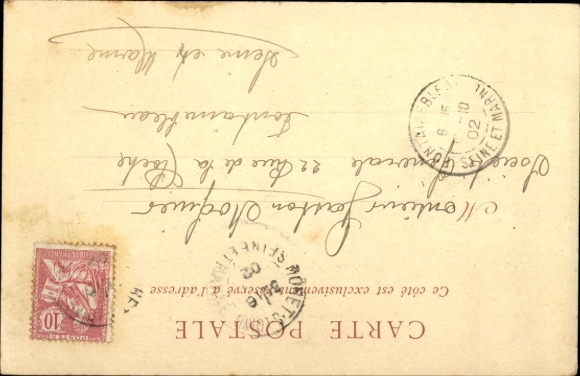 CARTE POSTALE
Ce côté est exclusivement réservé à l'adresse
Monsieur Gaston
Société Générale 22 Rue de la
Fontainebleau
Seine et Marne
MORET-S
SEINE ET MARNE
02
SEINE ET MARNE
10
02
10
POSTES